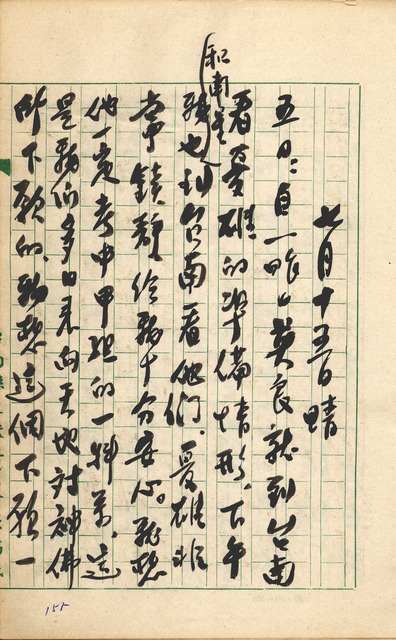 七月十五日 晴
五日:自一昨日英良就到台南
看夏雄的準備情形,下午
我也到台南看他們.夏雄非
和南星
常鎮靜給我十分安心。我想
他一定考中甲組的一科萬,這
是我们多日来向天地討神佛
所下願的,我想這個下願一
155